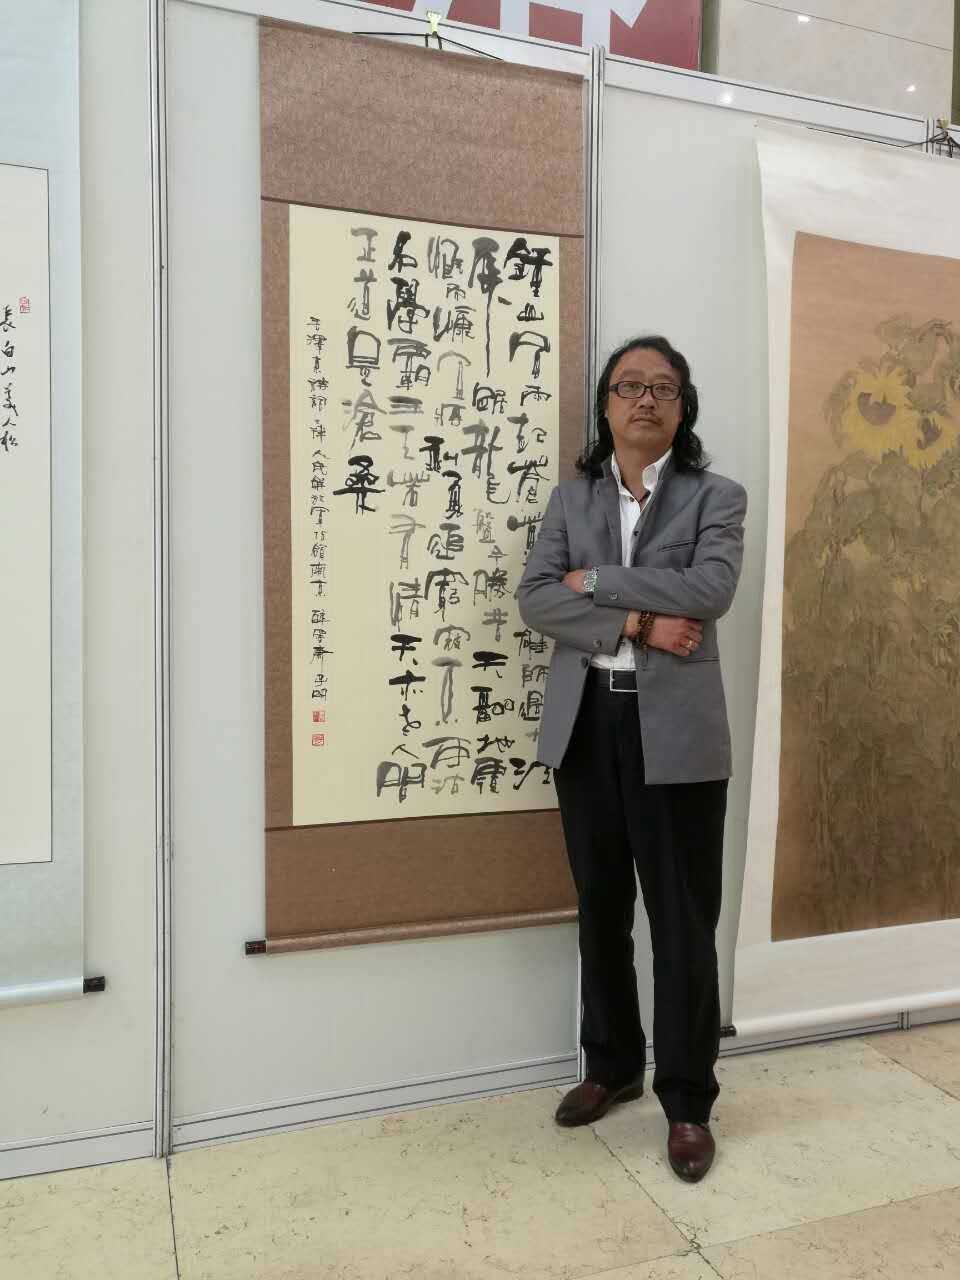 鍾山風雨起蒼黃雄師過江
虎踞龍盤今勝昔天翻地覆
慨而慷宜將剩勇追窮寇不可沽
名學霸王天若有情天亦老人間
正道是滄桑
毛澤東詩詞 人民解放軍佔領南京 子明
長白山美人松